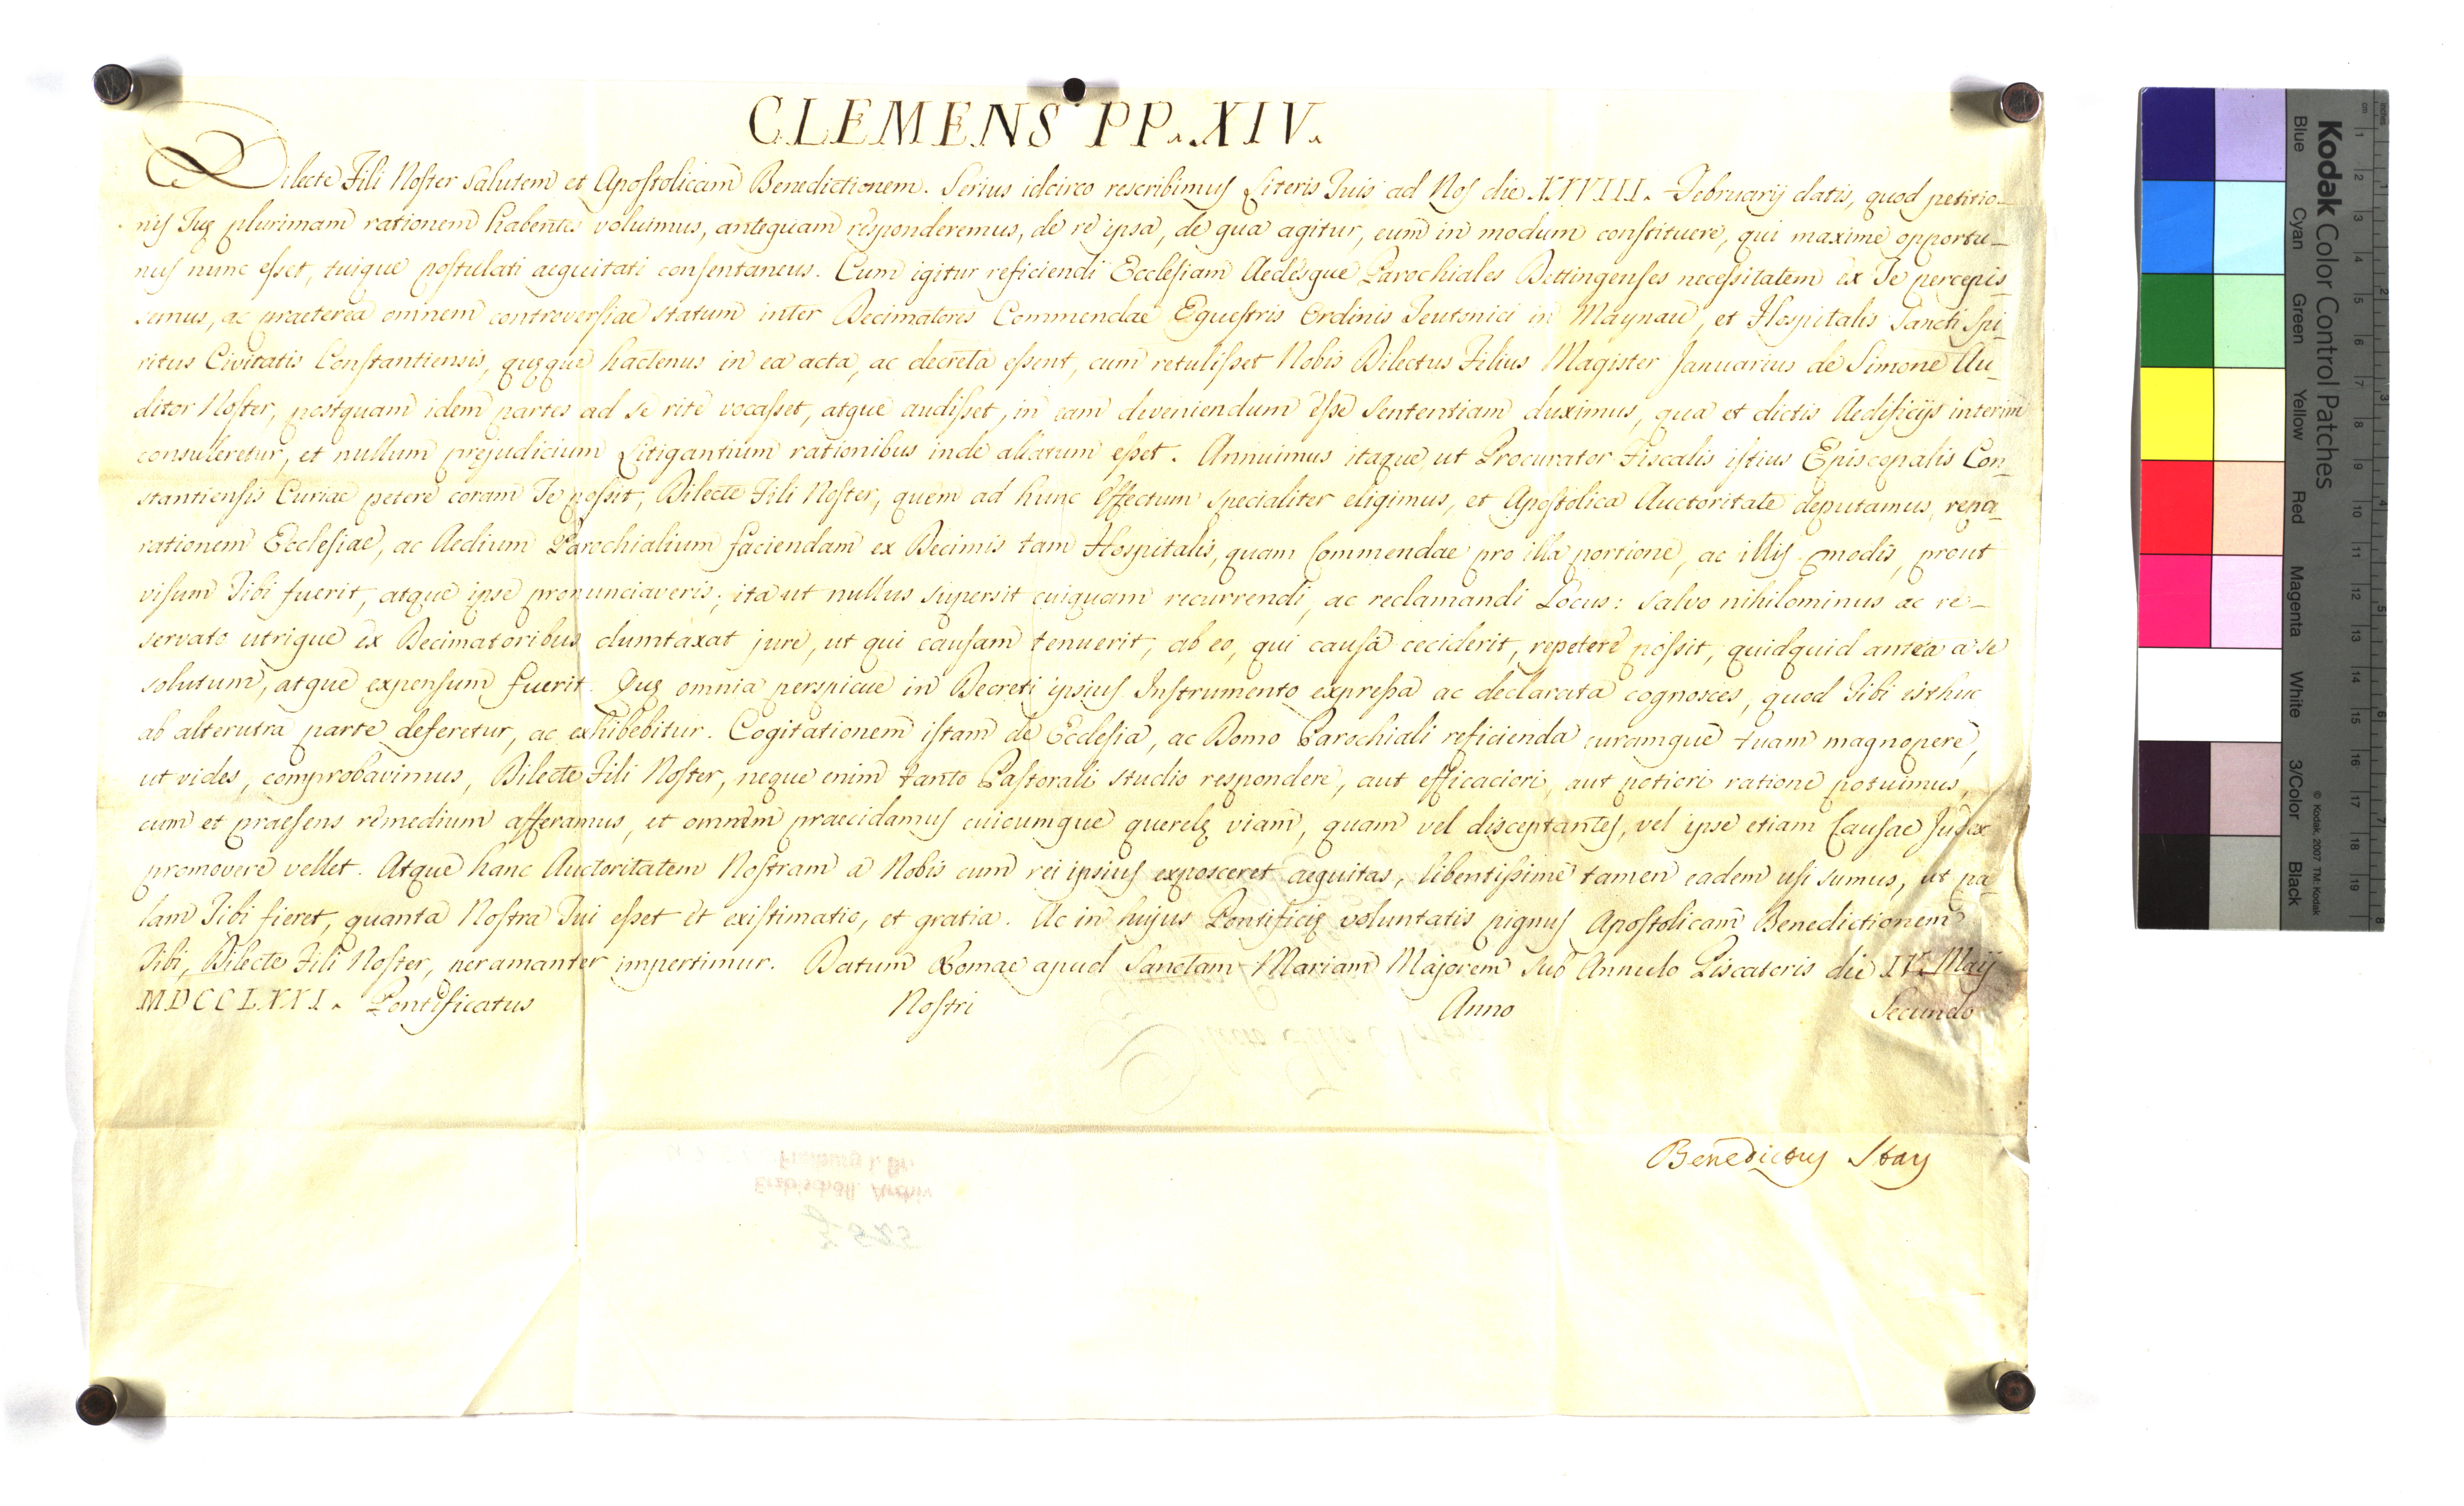 CLEMENS PP. XIV.
Dilecte Fili Noster Salutem et Apostolicam Benedictionem. Serius idcirco rescribimus Literis Tuis ad Nos die XXVIII. Februarij datis, quod petitio-
nis Tuę plurimam rationem habentes voluimus, antequam responderemus, de re ipsa, de qua agitur, eum in modum constituere, qui maxime opportu-
nus nunc esset, tuique postulati aequitati consentaneus. Cum igitur reficiendi Ecclesiam Aedesque Parochiales Dettingenses necessitatem ex Te percepis-
semus, ac praeterea omnem controversiae statum inter Decimatores Commendae Equestris Ordinis Teutonici in Maynau, et Hospitalis Sancti Spi-
ritus Civitatis Constantiensis, quęque hactenus in ea acta, ac decreta essent, cum retulisset Nobis Dilectus Filius Magister Januarius de Simone Au-
ditor Noster, postquam idem partes ad se rite vocasset, atque audisset, in eam deveniendum esse sententiam duximus, qua et dictis Aedificijs interim
consuleretur, et nullum prejudicium Litigantium rationibus inde allatum esset. Annuimus itaque, ut Procurator Fiscalis istius Episcopalis Con-
stantiensis Curiae petere coram Te possit, Dilecte Fili Noster, quem ad hunc effectum specialiter eligimus, et Apostolica Auctoritate deputamus, repa-
rationem Ecclesiae, ac Aedium Parochialium faciendam ex Decimis tam Hospitalis, quam Commendae pro illa portione, ac illis modis, prout
visum Tibi fuerit, atque ipse pronunciaveris; ita ut nullus supersit cuiquam recurrendi, ac reclamandi Locus: salvo nihilominus ac re-
servato utrique ex Decimatoribus dumtaxat jure, ut qui causam tenuerit, ab eo, qui causa ceciderit, repetere possit, quidquid antea a se
solutum, atque expensum fuerit. Quę omnia perspicue in Decreti ipsius Instrumento expressa ac declarata cognosces, quod Tibi isthuc
ab alterutra parte deferetur, ac exhibebitur. Cogitationem istam de Ecclesia, ac Domo Parochiali reficienda curamque tuam magnopere,
ut vides, comprobavimus, Dilecte Fili Noster, neque enim tanto Pastorali studio respondere, aut efficaciori, aut potiori ratione potuimus,
cum et praesens remedium afferamus, et omnem praecidamus cuicumque querelę viam, quam vel disceptantes, vel ipse etiam Causae Judex
promovere vellet. Atque hanc Auctoritatem Nostram a Nobis cum rei ipsius exposceret aequitas, libentissime tamen eadem usi sumus, ut pa-
lam Tibi fieret, quanta Nostra Tui esset et existimatio, et gratia. Ac in hujus Pontificię voluntatis pignus Apostolicam Benedictionem
Tibi, Dilecte Fili Noster, peramanter impertimur. Datum Romae apud Sanctam Mariam Majorem sub Annulo Piscatoris die IV. Maij
MDCCLXXI. Pontificatus Nostri Anno Secundo
Benedictus Stay
Erzbischöfl. Archiv
Freiburg i. Br.
Kodak Color Control Patches
Blue Cyan Green Yellow Red Magenta White 3/Color Black
© Kodak, 2007 TM: Kodak
cm 1 2 3 4 5 6 7 8 9 10 11 12 13 14 15 16 17 18 19
inches 1 2 3 4 5 6 7 8